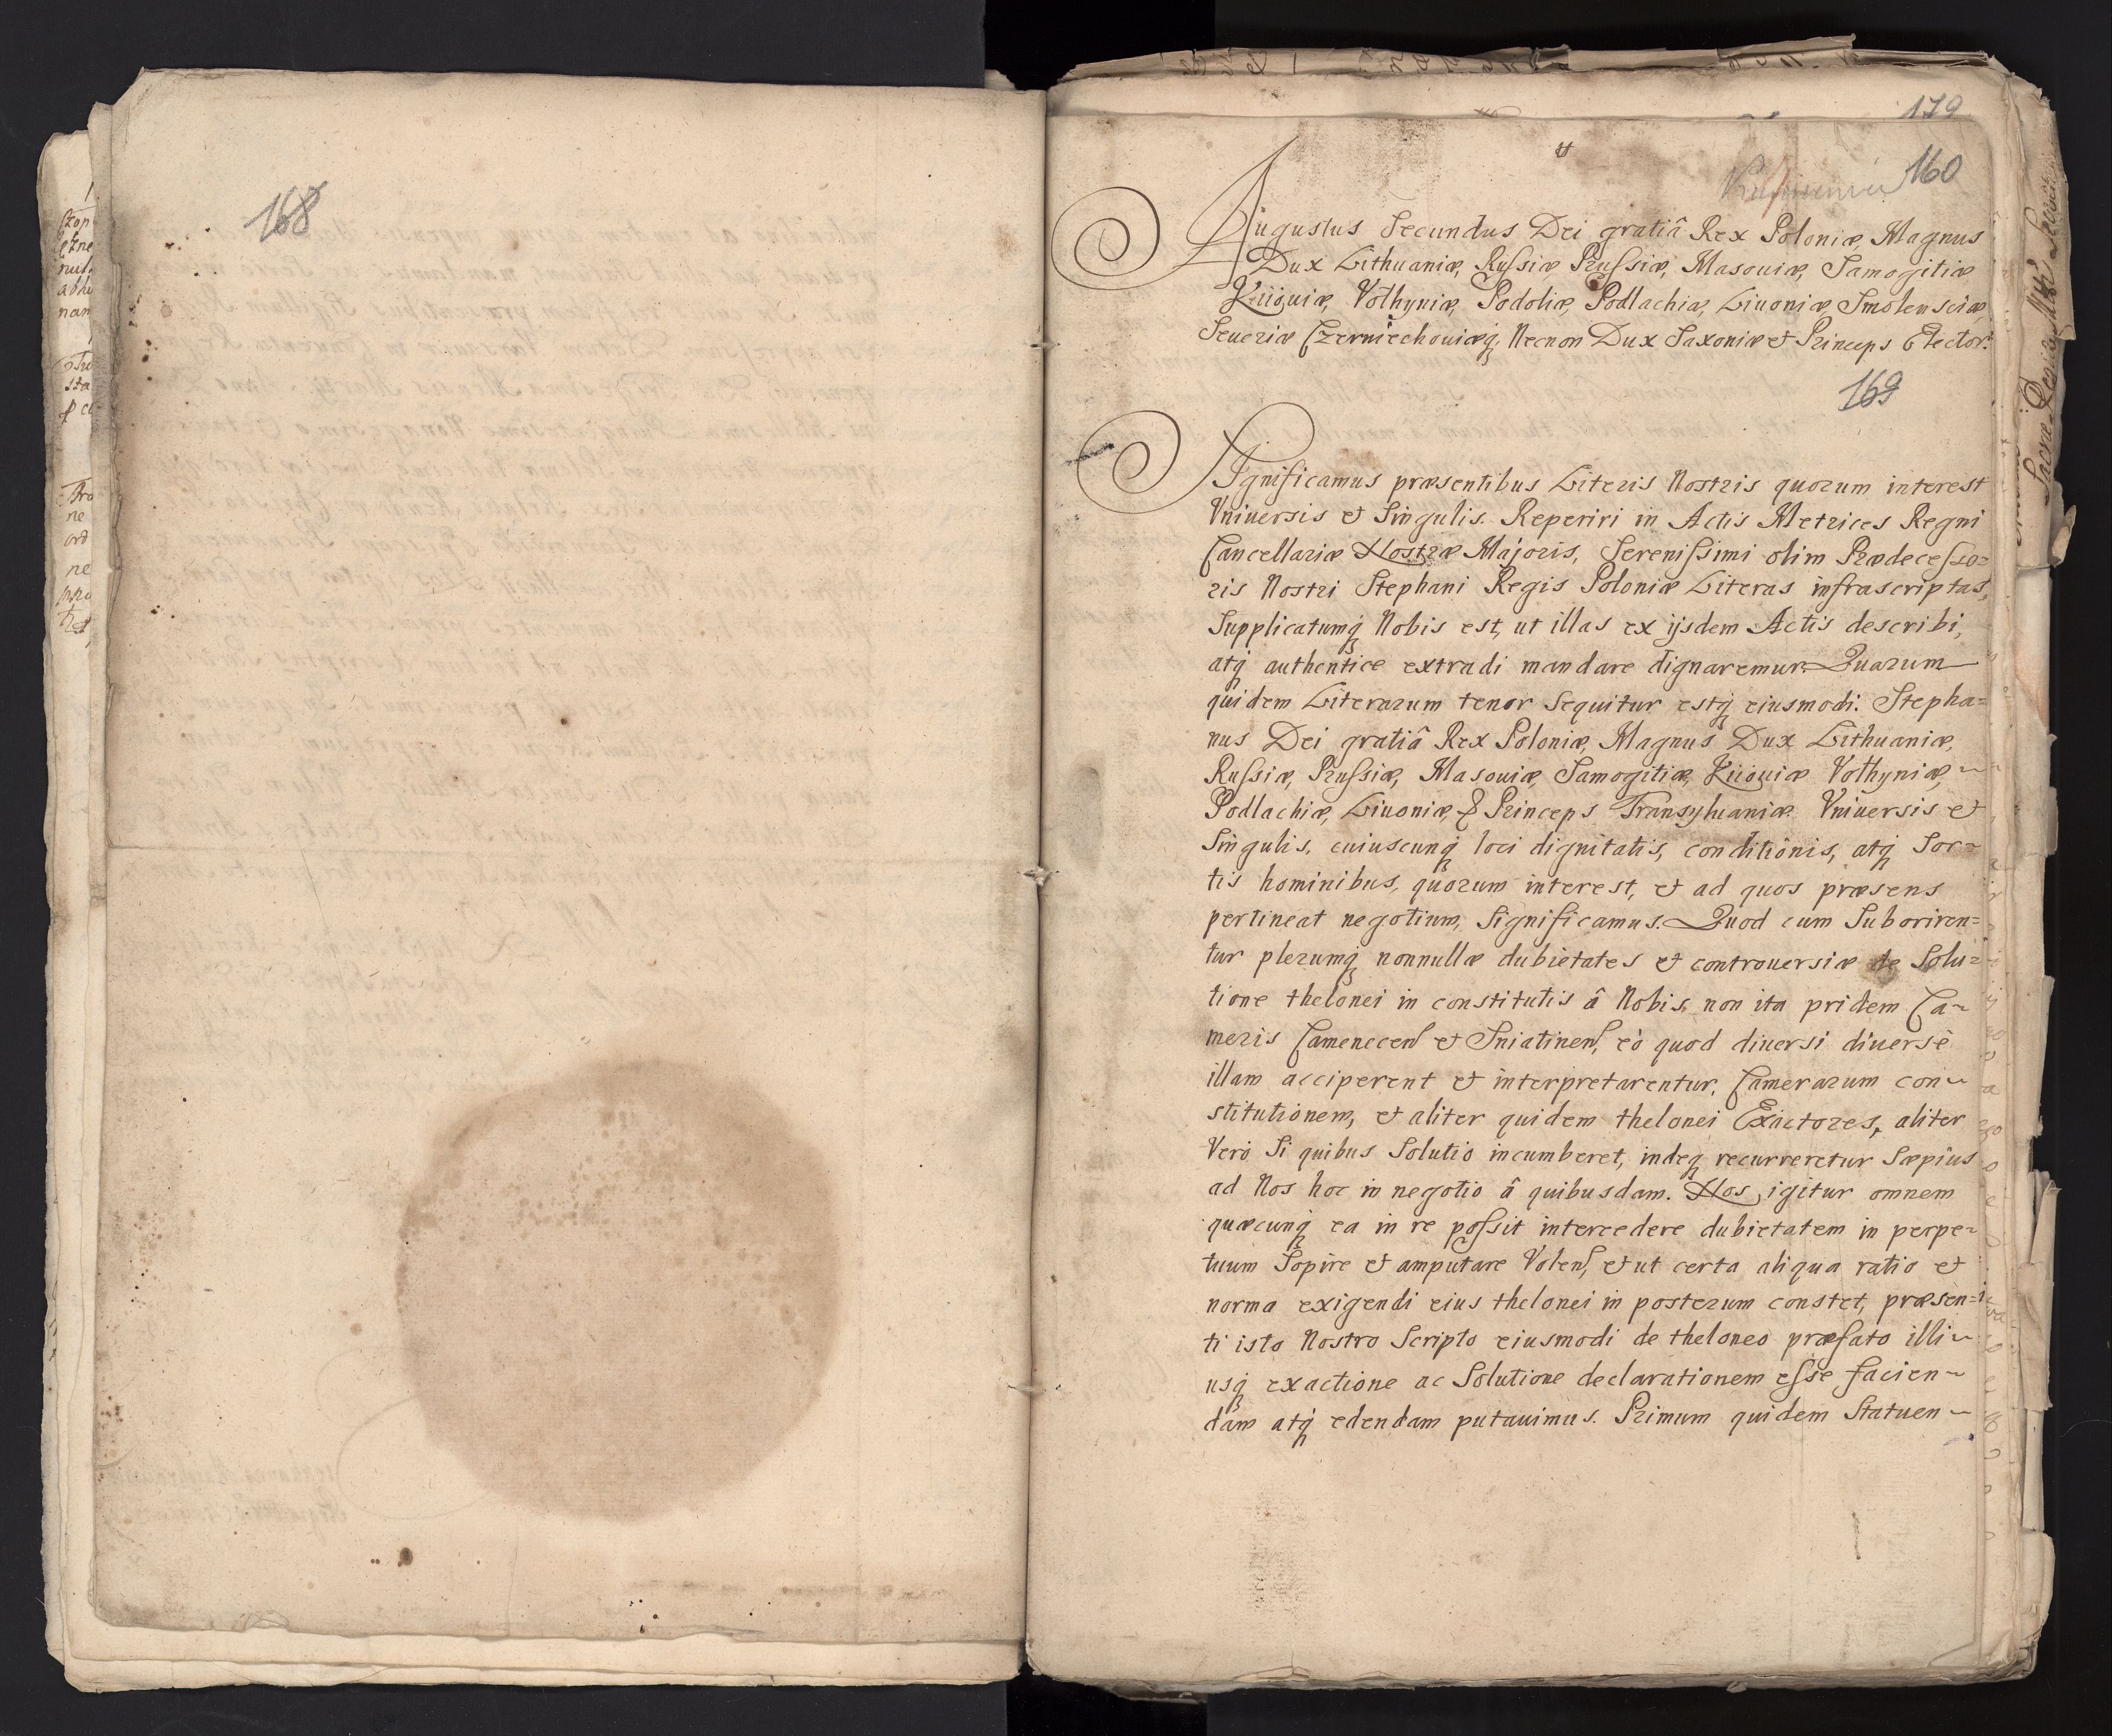 168
179
160
Augustus Secundus Dei gratiâ Rex Poloniæ, Magnus
Dux Lithuaniæ, Russiæ Prussiæ, Masouiæ, Samogitiæ
Kiiouiæ, Volhyniæ, Podoliæ, Podlachiæ, Liuoniæ, Smolensciæ,
Seueriæ Czerniechouiæq́; Necnon Dux Saxoniæ et Princeps Elector.
169
Significamus præsentibus Literis Nostris quorum interest
Vniuersis et Singulis. Reperiri in Actis Metrices Regni
Cancellariæ Nostræ Majoris, Serenissimi olim Prædecesso=
ris Nostri Stephani Regis Poloniæ Literas infrascriptas,
Supplicatumq́; Nobis est, ut illas ex ijsdem Actis describi,
atq́; authentice extradi mandare dignaremur. Quarum
quidem Literarum tenor sequitur estq́; eiusmodi: Stepha=
nus Dei gratiâ Rex Poloniæ, Magnus Dux Lithuaniæ,
Russiæ, Prussiæ, Masouiæ, Samogitiæ, Kiiouiæ Volhyniæ,
Podlachiæ, Liuoniæ, & Princeps Transyluaniæ. Vniuersis et
Singulis, cuiuscunq́; loci dignitatis, conditionis, atq́; Sor=
tis hominibus, quorum interest, et ad quos præsens
pertineat negotium, Significamus. Quod cum Suboriren=
tur plerumq́; nonnullæ dubietates et controuersiæ de Solu=
tione thelonei in constitutis â Nobis, non ita pridem Ca=
meris Camenecen et Sniatinen, eò quod diuersi diuersè
illam acciperent et interpretarentur, Camerarum con=
stitutionem, et aliter quidem thelonei Exactores, aliter
Vero Si quibus Solutio incumberet, indeq́; recurreretur Sæpius
ad Nos hoc in negotio â quibusdam. Nos igitur omnem
quæcunq́; ea in re possit intercedere dubietatem in perpe=
tuum Sopire et amputare Volen, et ut certa aliqua ratio et
norma exigendi eius thelonei in posterum constet, præsen=
ti isto Nostro Scripto eiusmodi de theloneo præfato illi=
usq́; exactione ac Solutione declarationem esse facien=
dam atq́; edendam putauimus. Primum quidem Statuen=